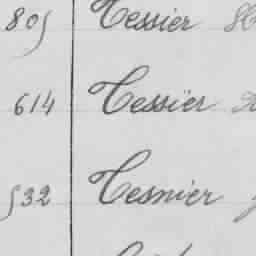 805 Tessier
614 Tessier
532 Tesnier